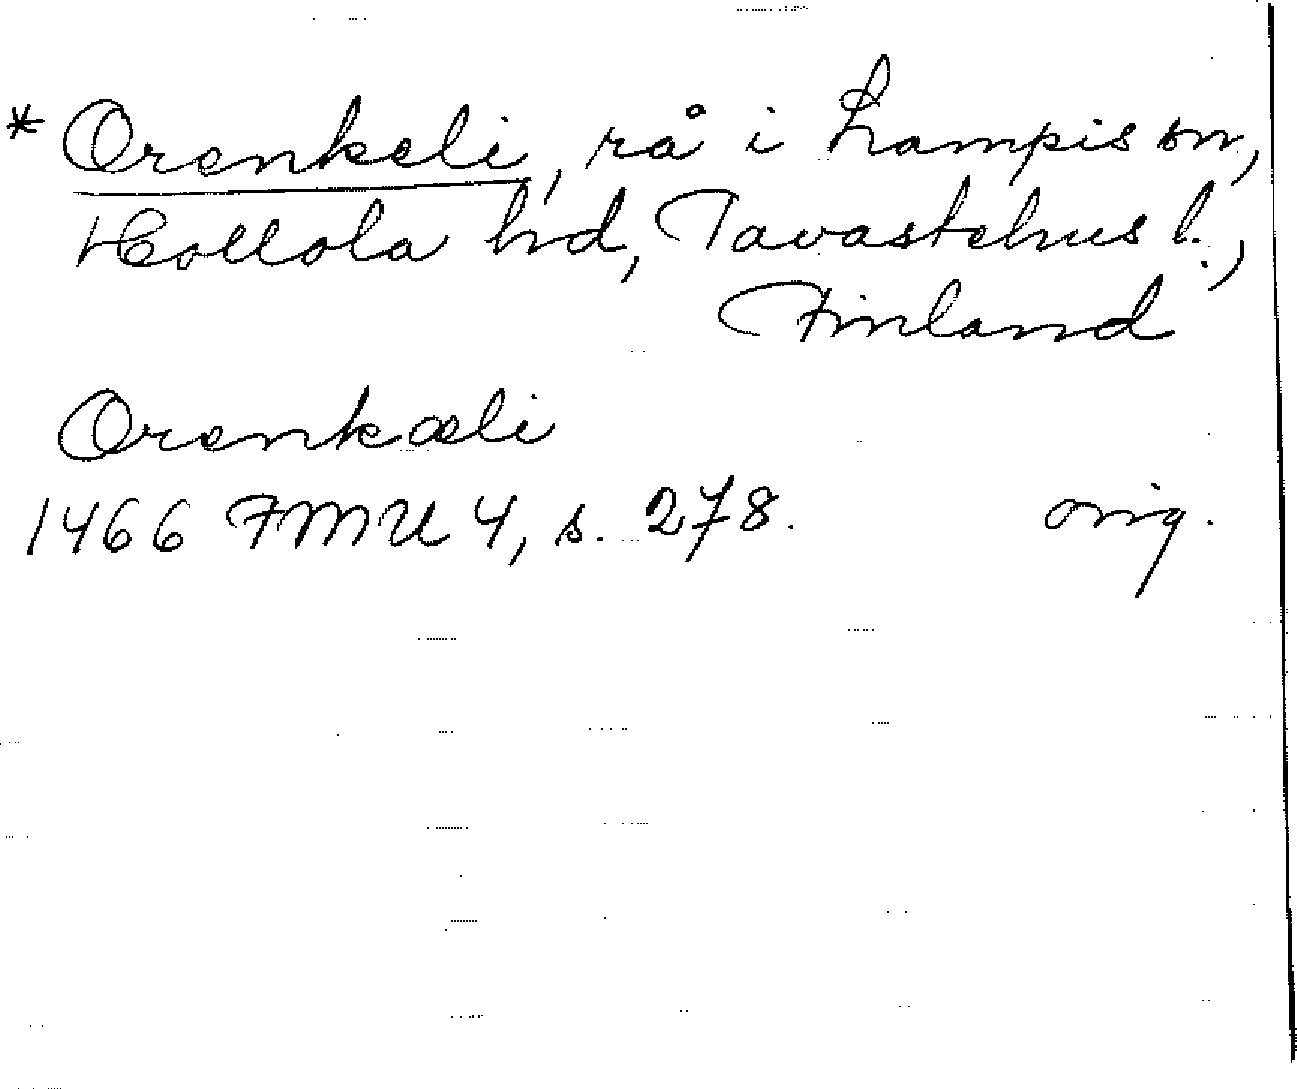 * Orenkeli, rå i Lampis sn,
Hollola hd, Tavastehus l.,
Finland
Orenkæli
1466 FMU 4, s. 278. orig.